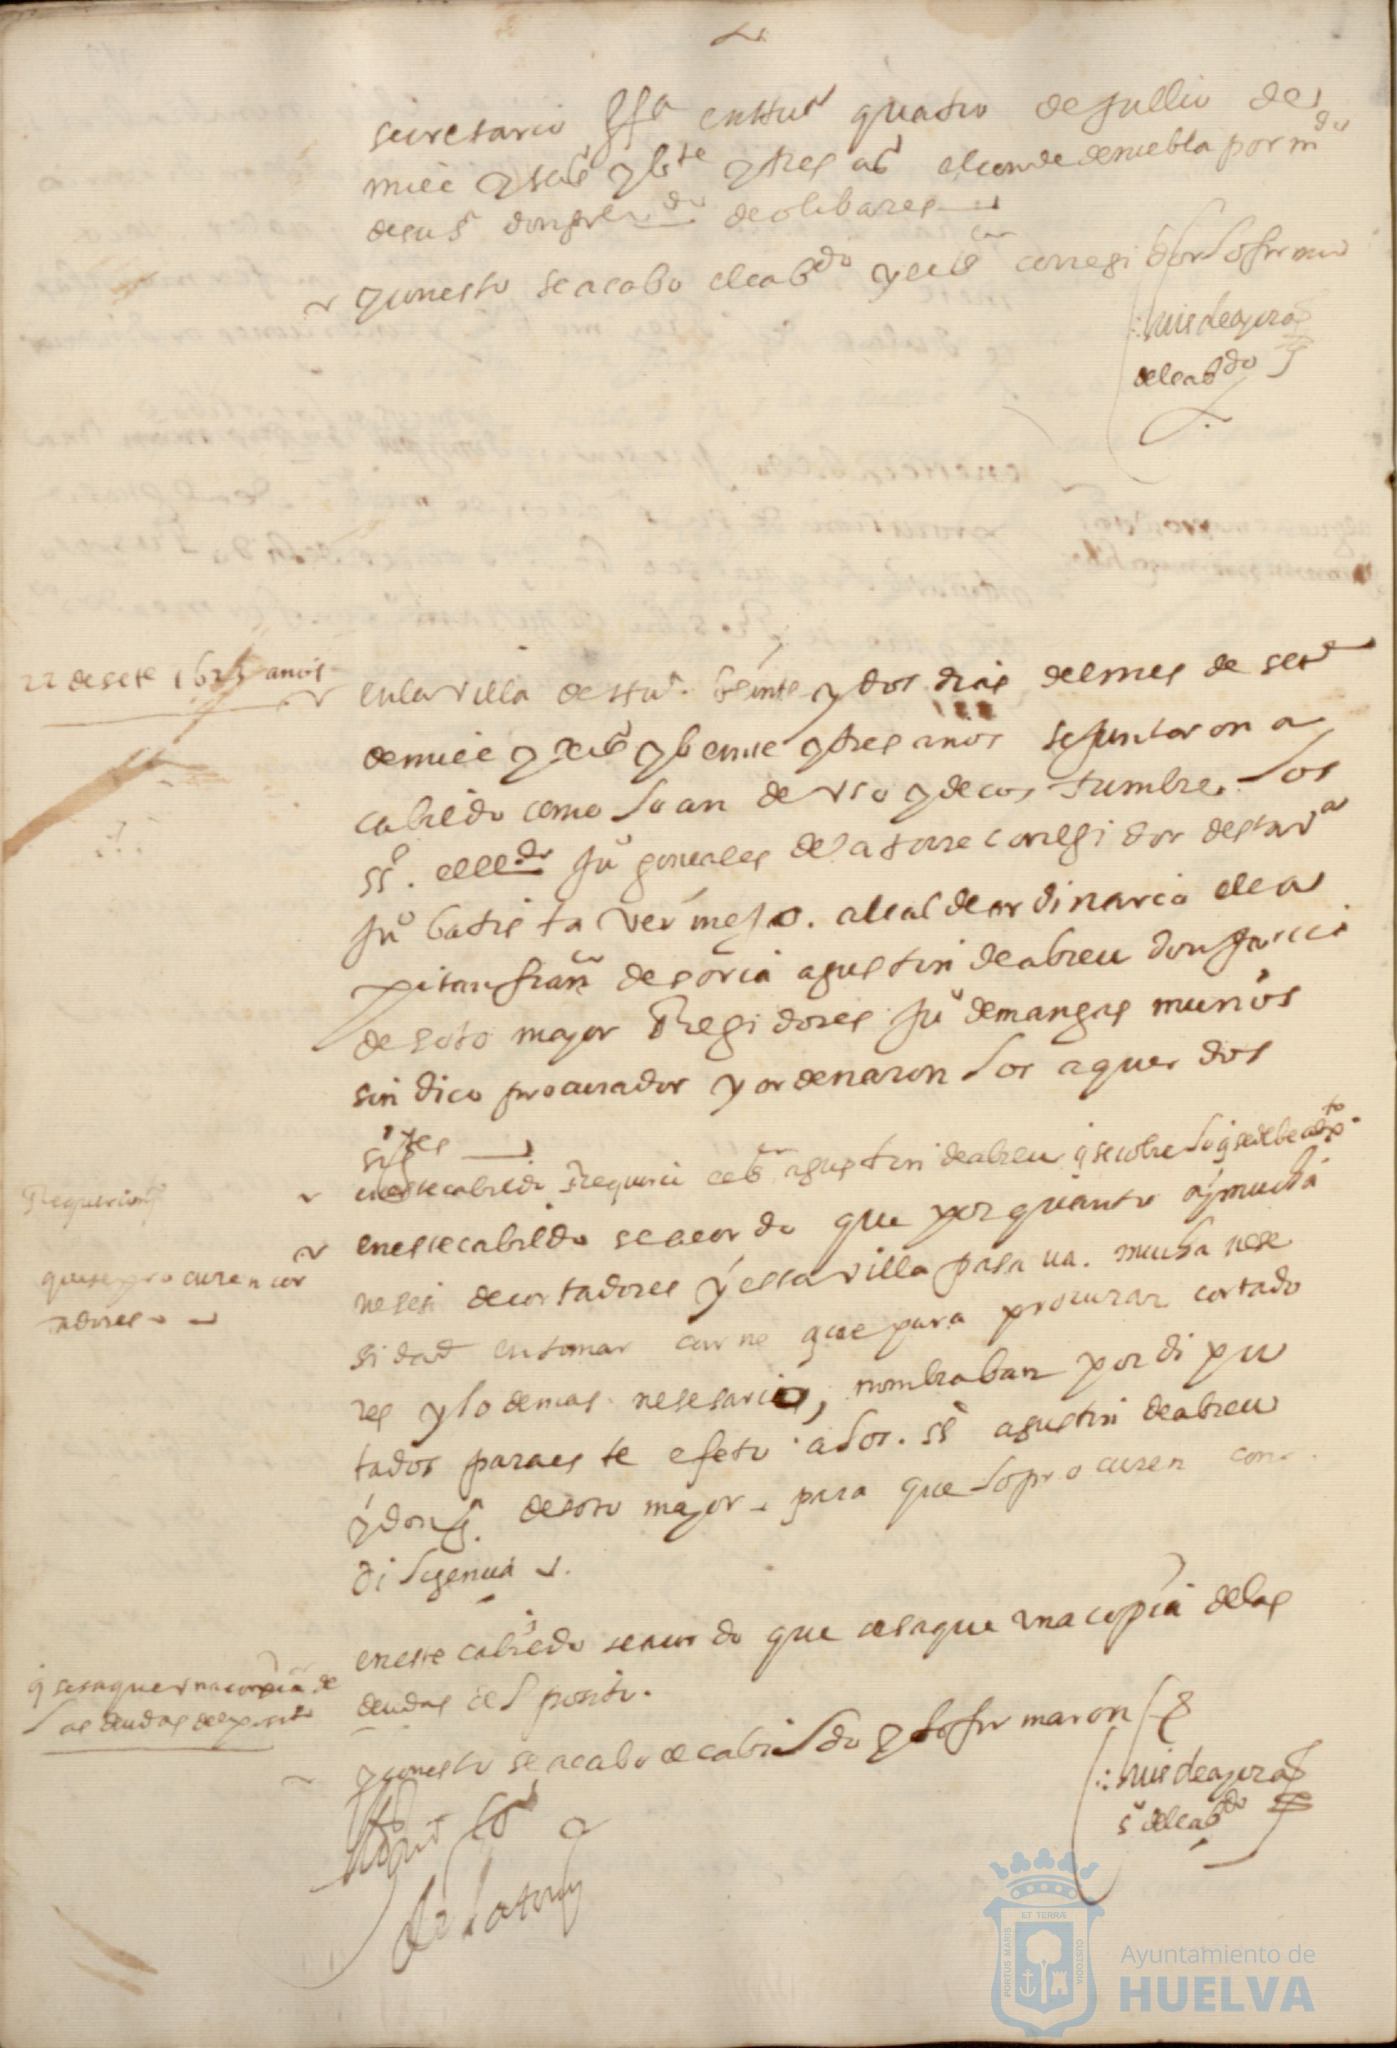 secretario ffa en Huª quatro de Jullio de
mill y seisº y bte y tres aº el conde de niebla por mdo
de su sª don grl do de olibares
y con esto se acabo el cabdo y el sr corregidor lo firmo
luis de ayora
del cabdo
22 de sete 1623 años
en la villa de Huª beinte y dos dias del mes de sete
de mill y seisº y beinte y tres años se juntaron a
cabildo como lo an de uso y de costumbre los
ss. el lldo Juº gonçales de la torre corregidor desta vª
Juº batista vermejo alcalde ordinario el ca
pitan franco de soria agustin de abreu don garcia
de soto mayor Regidores Juº de mangas muños
sindico procurador y ordenaron los aquerdos
sigtes
en este cabildo Requirio el sr agustin de abreu q se cobre lo q se debe al pto
Requerimto
en este cabildo se acordo que por quanto ay mucha
nesesi de cortadores y esta villa pasava mucha nese
sidad en tomar carne que para procurar cortado
res y lo demas nesesario, nombraban por dipu
tados para este efeto a los ss agustin de abreu
y don gª de soto mayor para que lo procuren con
diligencia
que se procuren cor
tadores
en este cabildo se acordo que se saque una copia de las
deudas del posito.
q se saque una copia de
las deudas del posito
y con esto se acabo el cabildo y lo firmaron
luis de ayora
sº del cabdo
de la torre
PORTUS MARIS ET TERRÆ CUSTODIA
Ayuntamiento de
HUELVA